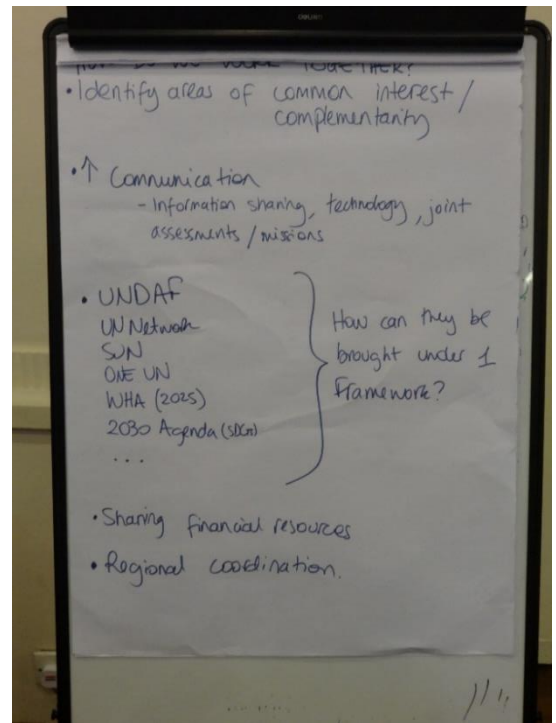 HOW DO WE WORK TOGETHER?
• Identify areas of common interest /
complementarity
• ↑ Communication
- Information sharing, technology, joint
assessments / missions
• UNDAF
UN Network
SUN
ONE UN
WHA (2025)
2030 Agenda (SDGs)
...
How can they be
brought under 1
framework?
• Sharing financial resources
• Regional coordination.